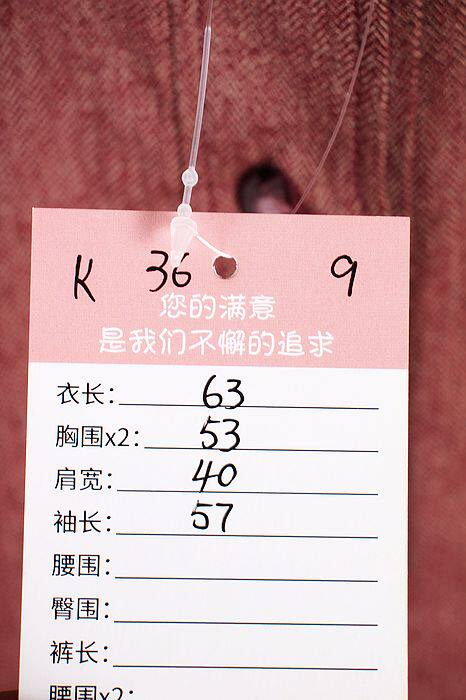 K 36 9
您的满意
是我们不懈的追求
衣长: 63
胸围x2: 53
肩宽: 40
袖长: 57
腰围:
臀围:
裤长:
腰围x2: